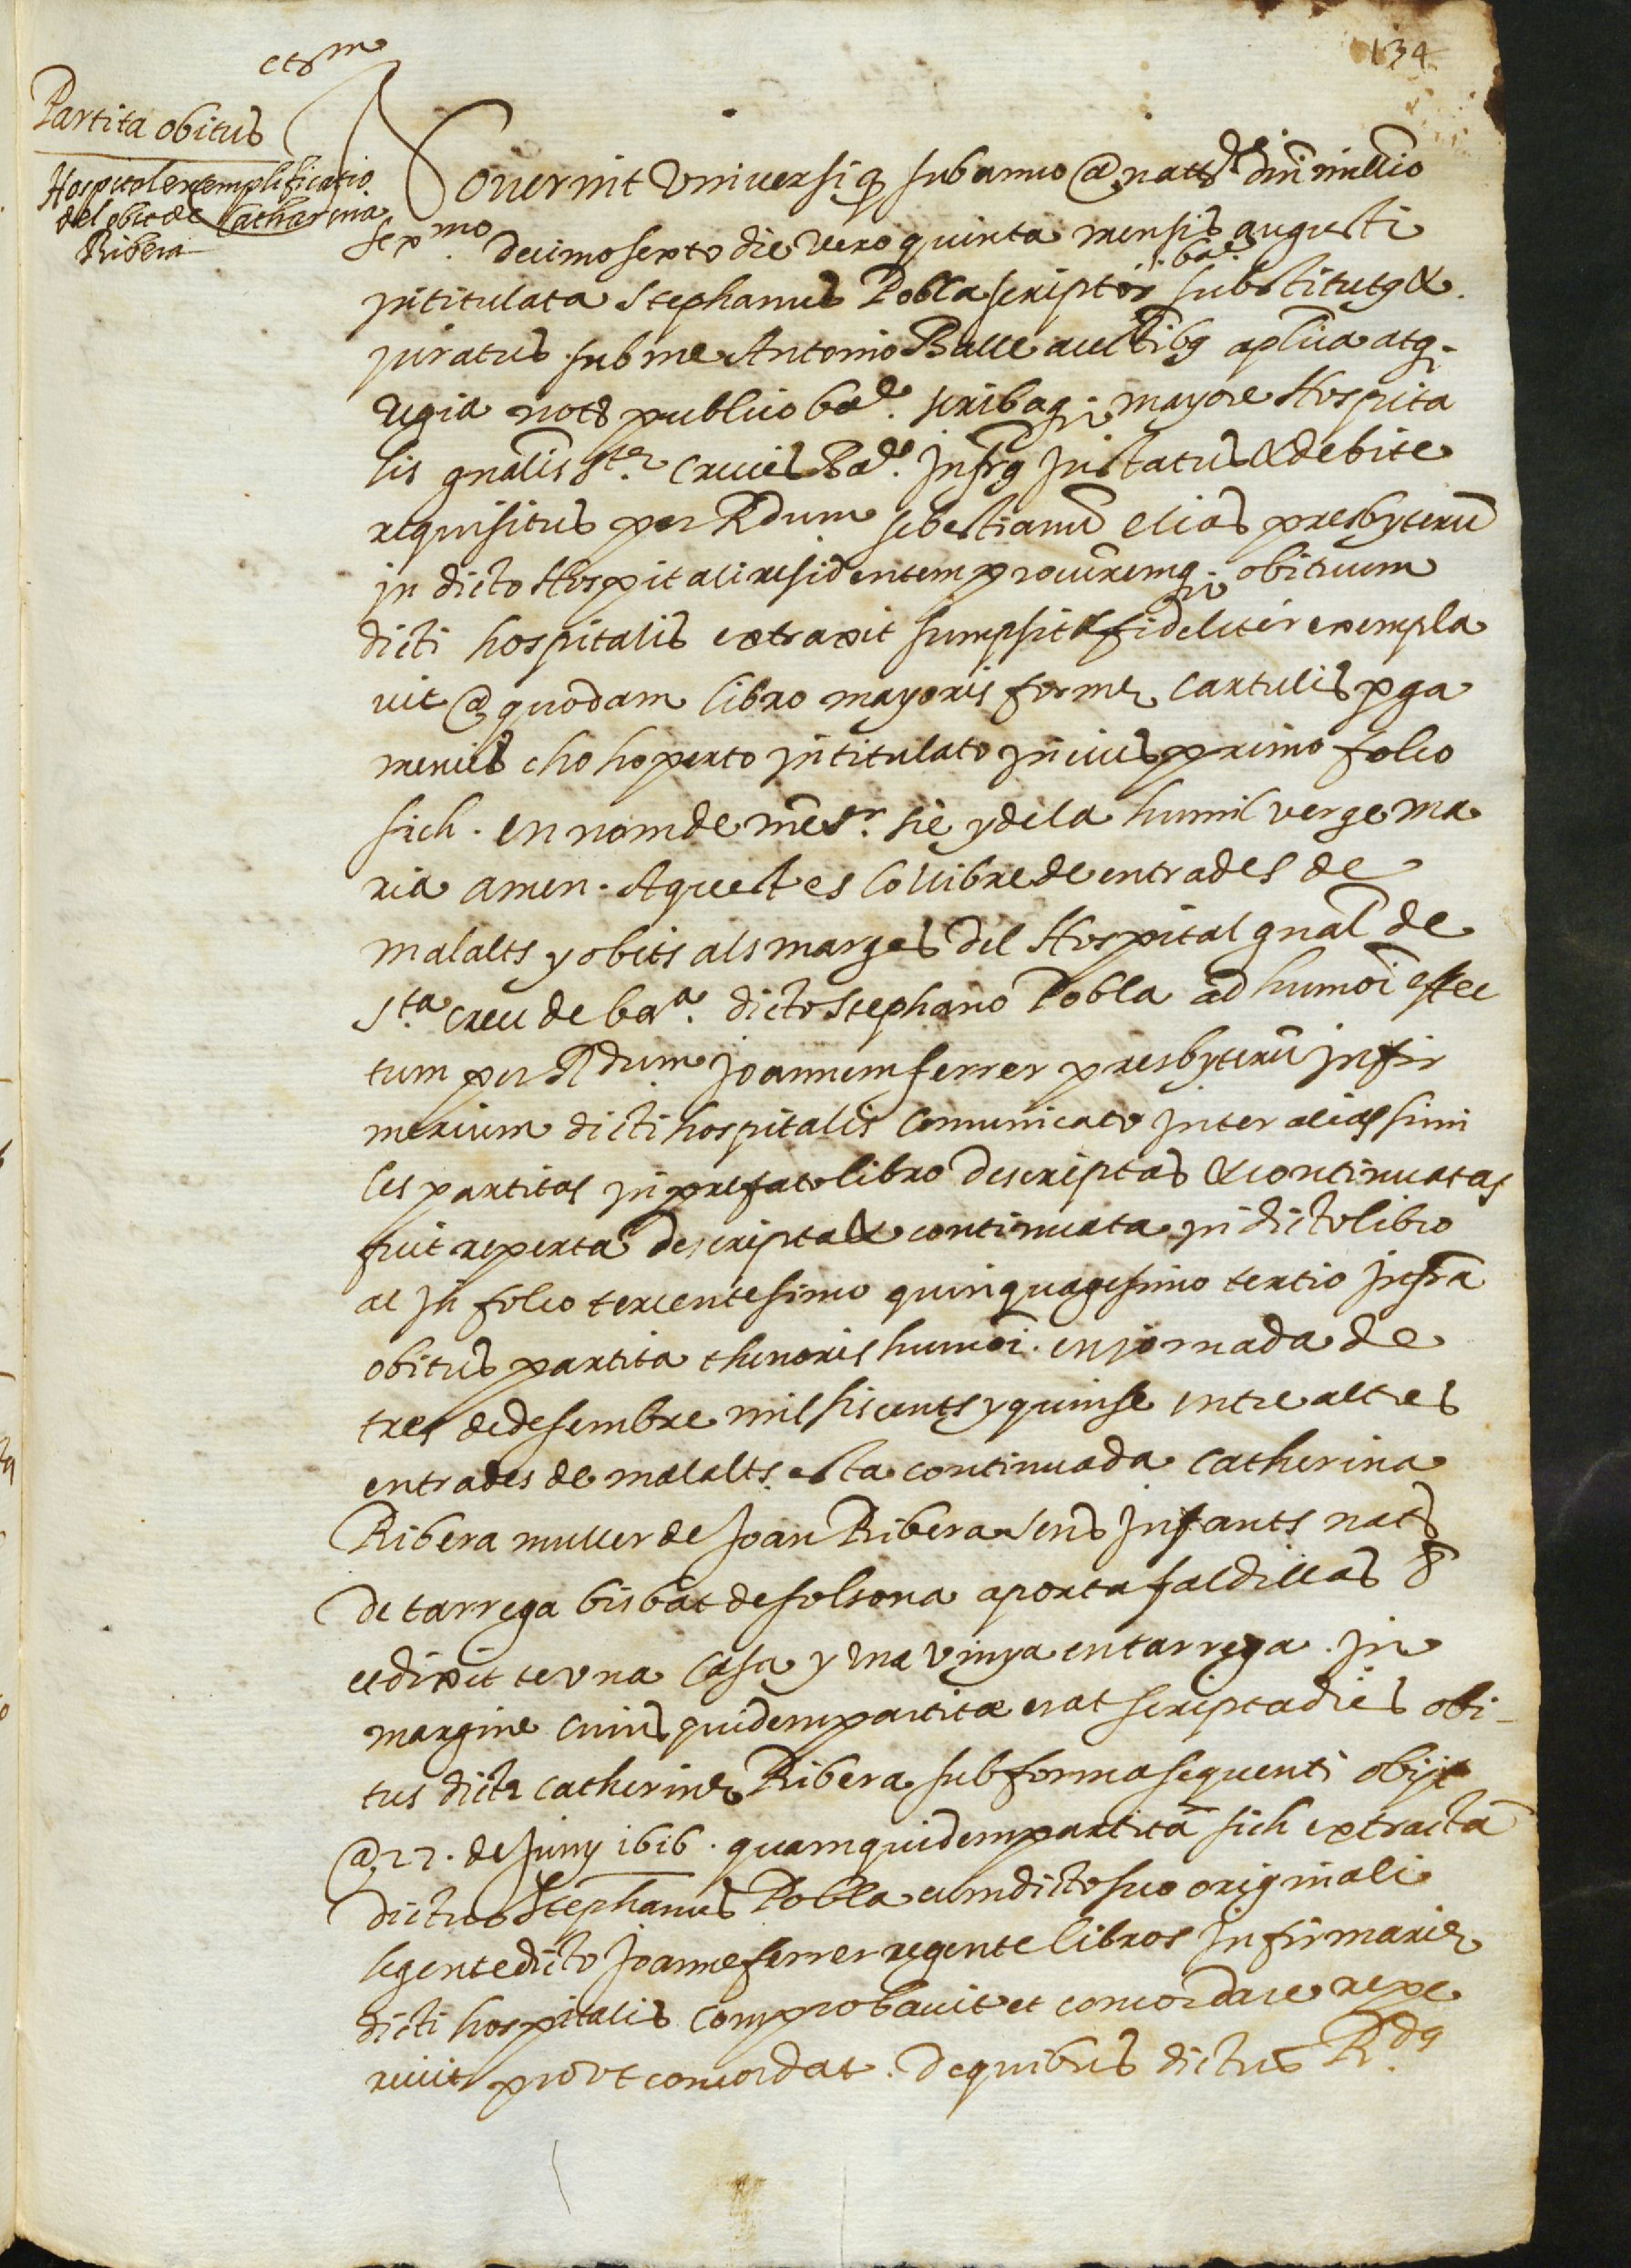 134
Partita obitus
Hospitalexemplificatio
del obit de Catharina
Ribera
Noverint Universi q sub anno @ natte dni millio
sexmo. decimosexto die vero quinta mensis augusti
intitulata Stephanus Pobla scriptor bae. substitutq &
juratus sub me Antonio Batlle auctibq aplica atq.
regia nots publico bae. scribaq mayore Hospita
lis gnalis Ste Crucis Bae. Infrq Instatus & debite
requisitus per Rdum sebestianu elias presbyteru
in dicto Hospitali residentem procuremq obituum
dicti hospitalis extraxit sumpsit & fideliter exempla
vit @ quodam libro mayoris forme cartulis pga
meneis cho hoperto intitulato in cuius primo folio
sich. en nom de nre sr. sie y de la humil verge ma
ria amen. Aquest es lo llibre de entrades de
malalts y obits als marges del Hospital gnal de
Sta creu de bara. dicto Stephano Pobla ad humoi effec
tum per Rdum Joannem ferrer presbyteru infir
merium dicti hospitalis comunicato inter alias simi
les partitas in prefato libro descriptas & continuatas
fuit reperta descripta & continuata in dicto libro
ac in folio tercentesimo quinquagesimo tertio infra
obitus partita thenoris humoi. en jornada de
tres de desembre mil siscents y quinse entre altres
entrades de malalts esta continuada Catherina
Ribera muller de Joan Ribera sens infants nats
de tarrega bisbat de solsona aporta faldillas &
et dixit te una casa y una vinya en tarrega. In
margine cuius quidem partite erat scripta dies obi-
tus dicte catherine Ribera sub forma sequenti obijt
@ 27. de Juny 1616. quamquidem partita sich extracta
dictus Stephanus Pobla cum dicto suo originali
legente dicto Joanne ferrer regente libros infirmarie
dicti hospitalis comprobavit et concordare repe
rivit prout concordat. de quibus dictus Rdq